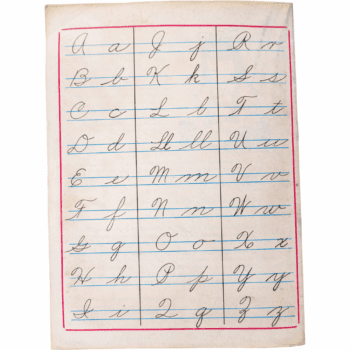 A a
B b
C c
D d
E e
F f
G g
H h
I i
J j
K k
L l
Ll ll
M m
N n
O o
P p
Q q
R r
S s
T t
U u
V v
W w
X x
Y y
Z z